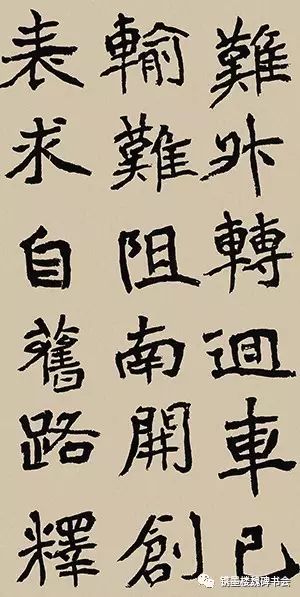 難升轉迴車已
輸難阻南開創
表求自舊路釋
墨楼魏碑书会